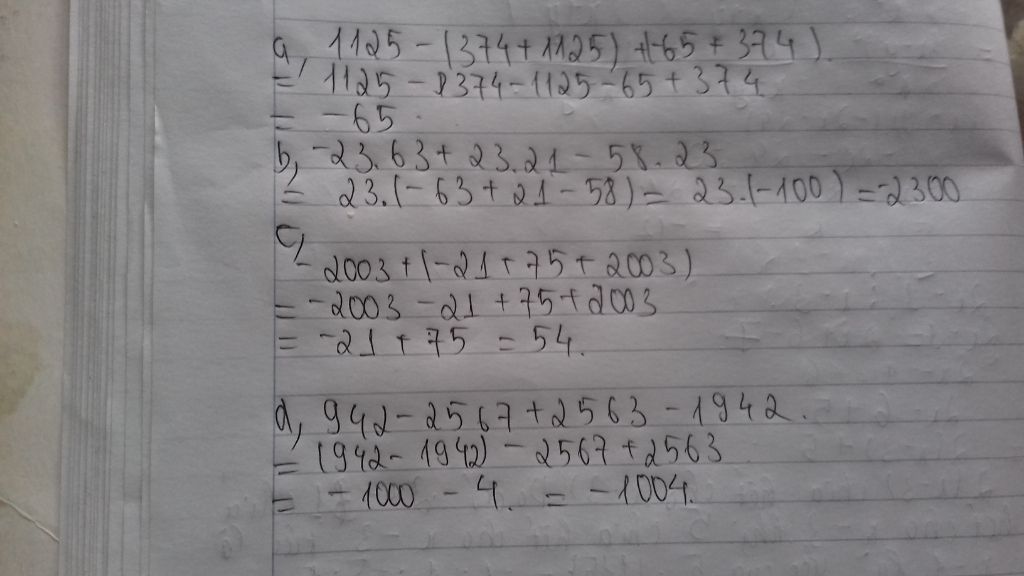 a, 1125 - (374 + 1125) + (-65 + 374).
= 1125 - 374 - 1125 - 65 + 374
= -65.
b, -23.63 + 23.21 - 58.23
= 23.(-63 + 21 - 58) = 23.(-100) = -2300
c,
-2003 + (-21 + 75 + 2003)
= -2003 - 21 + 75 + 2003
= -21 + 75 = 54.
d, 942 - 2567 + 2563 - 1942.
= (942 - 1942) - 2567 + 2563
= -1000 - 4. = -1004.